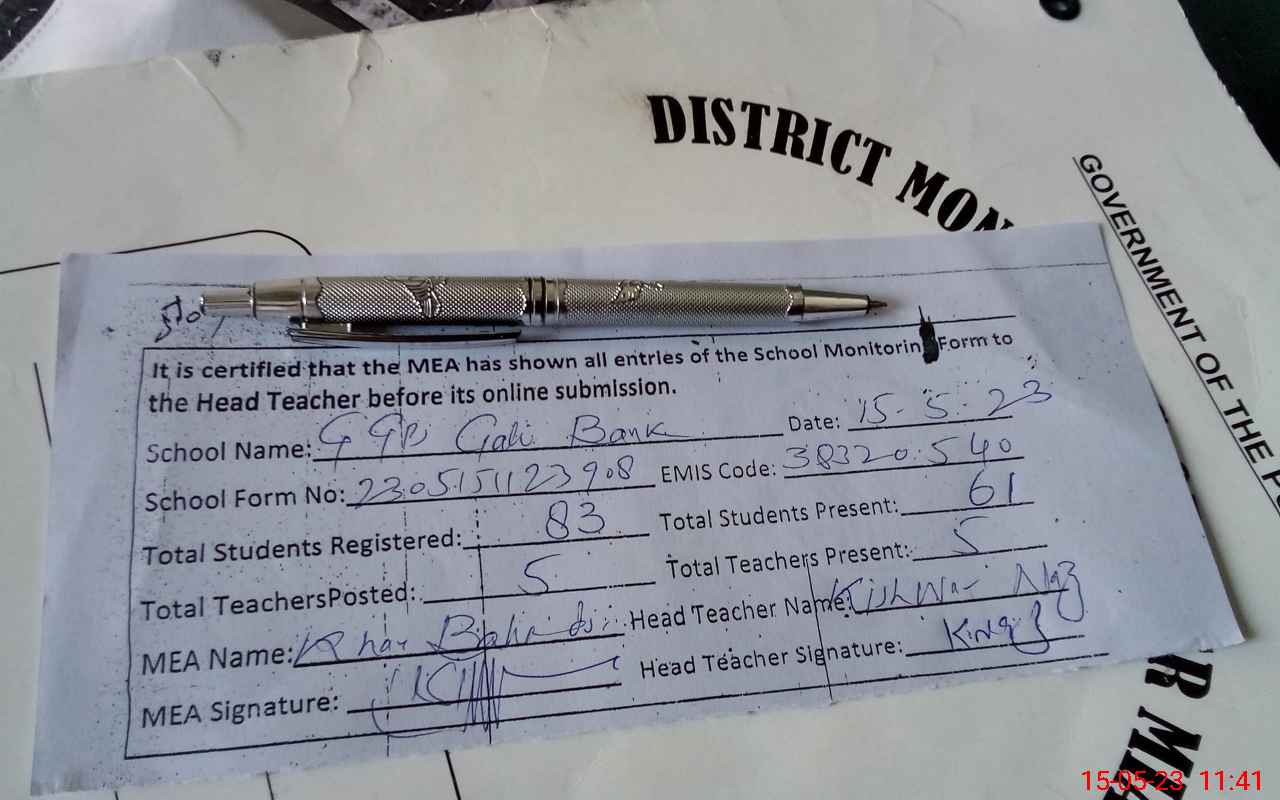 DISTRICT MON
GOVERNMENT OF THE P
It is certified that the MEA has shown all entries of the School Monitorin Form to
the Head Teacher before its online submission.
School Name: GGPS Gali Bank Date: 15-5-23
School Form No: 2305151123908 EMIS Code: 38320540
Total Students Registered: 83 Total Students Present: 61
Total TeachersPosted: 5 Total Teachers Present: 5
MEA Name: Head Teacher Name: Kishwar Naz
MEA Signature: Head Teacher Signature:
15-05-23, 11:41